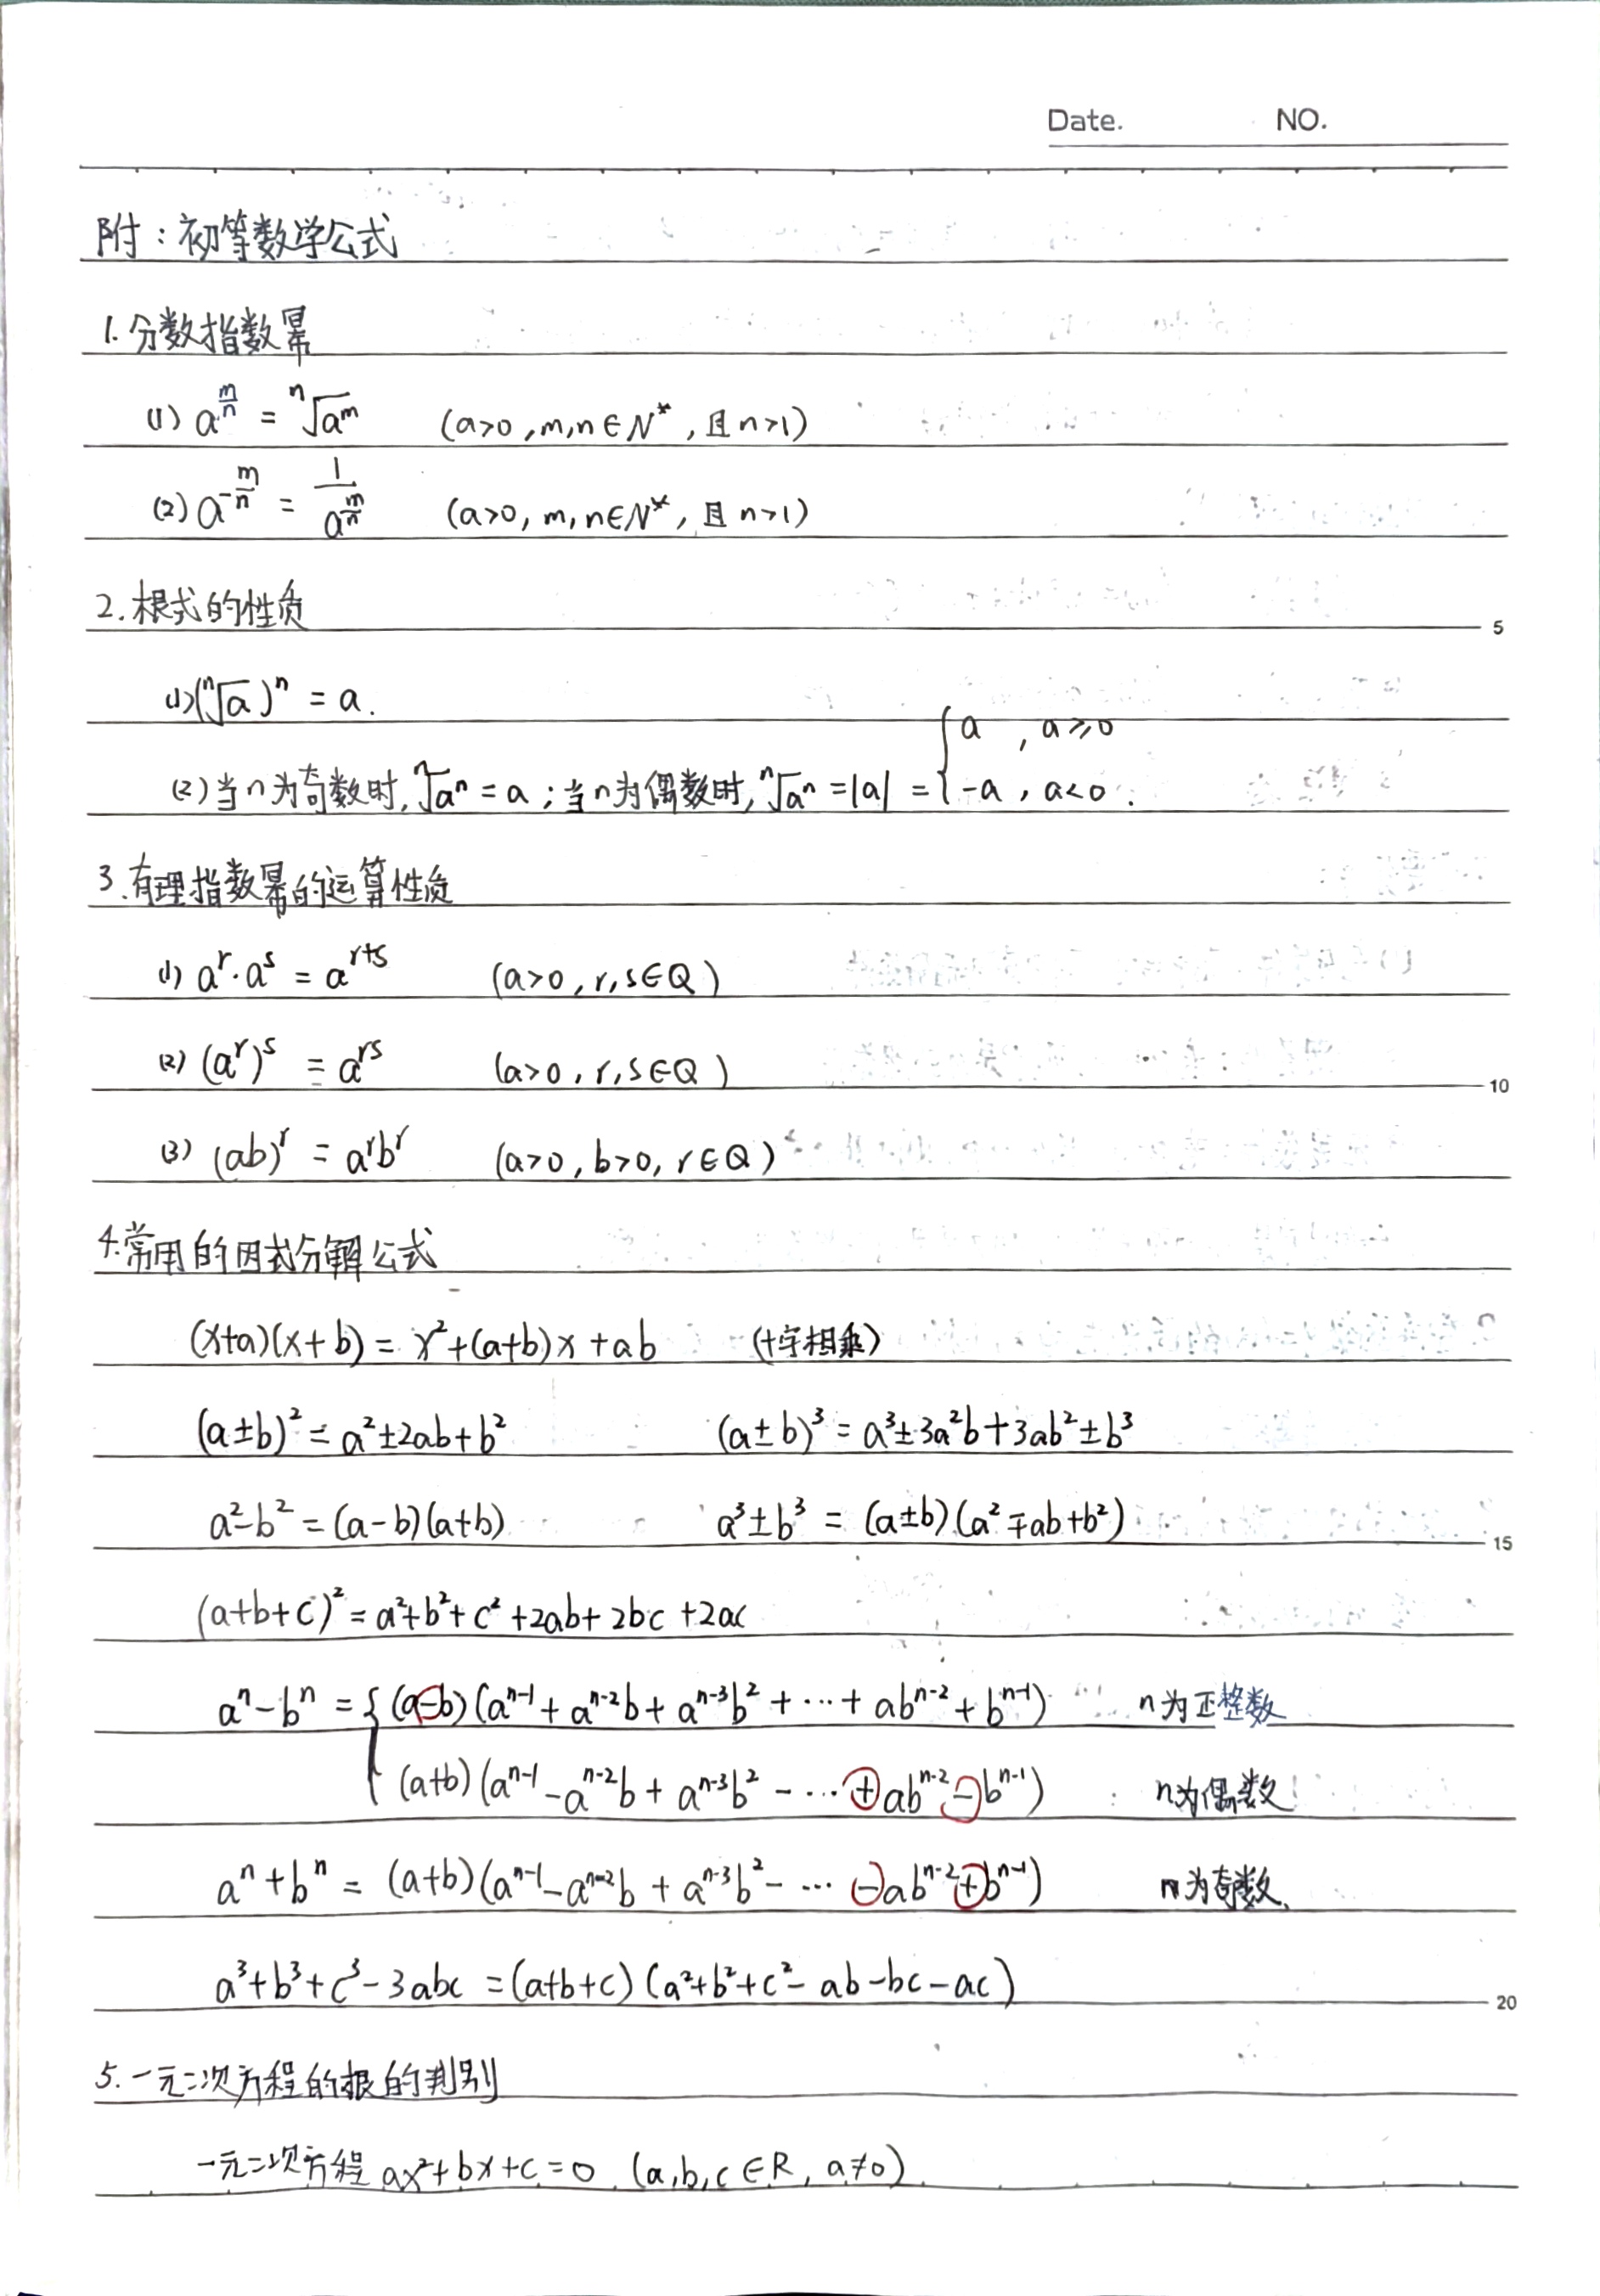 Date. NO.
附：初等数学公式
1. 分数指数幂
(1) a^{\frac{m}{n}} = \sqrt[n]{a^m} (a>0, m,n∈N*, 且n>1)
(2) a^{-\frac{m}{n}} = \frac{1}{a^{\frac{m}{n}}} (a>0, m,n∈N*, 且n>1)
2. 根式的性质
5
(1) (\sqrt[n]{a})^n = a.
(2) 当n为奇数时, \sqrt[n]{a^n} = a；当n为偶数时, \sqrt[n]{a^n} = |a| = { a , a≥0
-a , a<0 .
3. 有理指数幂的运算性质
(1) a^r·a^s = a^{r+s} (a>0, r,s∈Q)
(2) (a^r)^s = a^{rs} (a>0, r,s∈Q)
10
(3) (ab)^r = a^r b^r (a>0, b>0, r∈Q)
4. 常用的因式分解公式
(x+a)(x+b) = x²+(a+b)x+ab (十字相乘)
(a±b)² = a²±2ab+b² (a±b)³ = a³±3a²b+3ab²±b³
a²-b² = (a-b)(a+b) a³±b³ = (a±b)(a²∓ab+b²)
15
(a+b+c)² = a²+b²+c²+2ab+2bc+2ac
a^n-b^n = { (a-b)(a^{n-1}+a^{n-2}b+a^{n-3}b²+⋯+ab^{n-2}+b^{n-1}) n为正整数
(a+b)(a^{n-1}-a^{n-2}b+a^{n-3}b²-⋯+ab^{n-2}-b^{n-1}) n为偶数
a^n+b^n = (a+b)(a^{n-1}-a^{n-2}b+a^{n-3}b²-⋯-ab^{n-2}+b^{n-1}) n为奇数.
a³+b³+c³-3abc = (a+b+c)(a²+b²+c²-ab-bc-ac)
20
5. 一元二次方程的根的判别
一元二次方程 ax²+bx+c=0 (a,b,c∈R, a≠0)